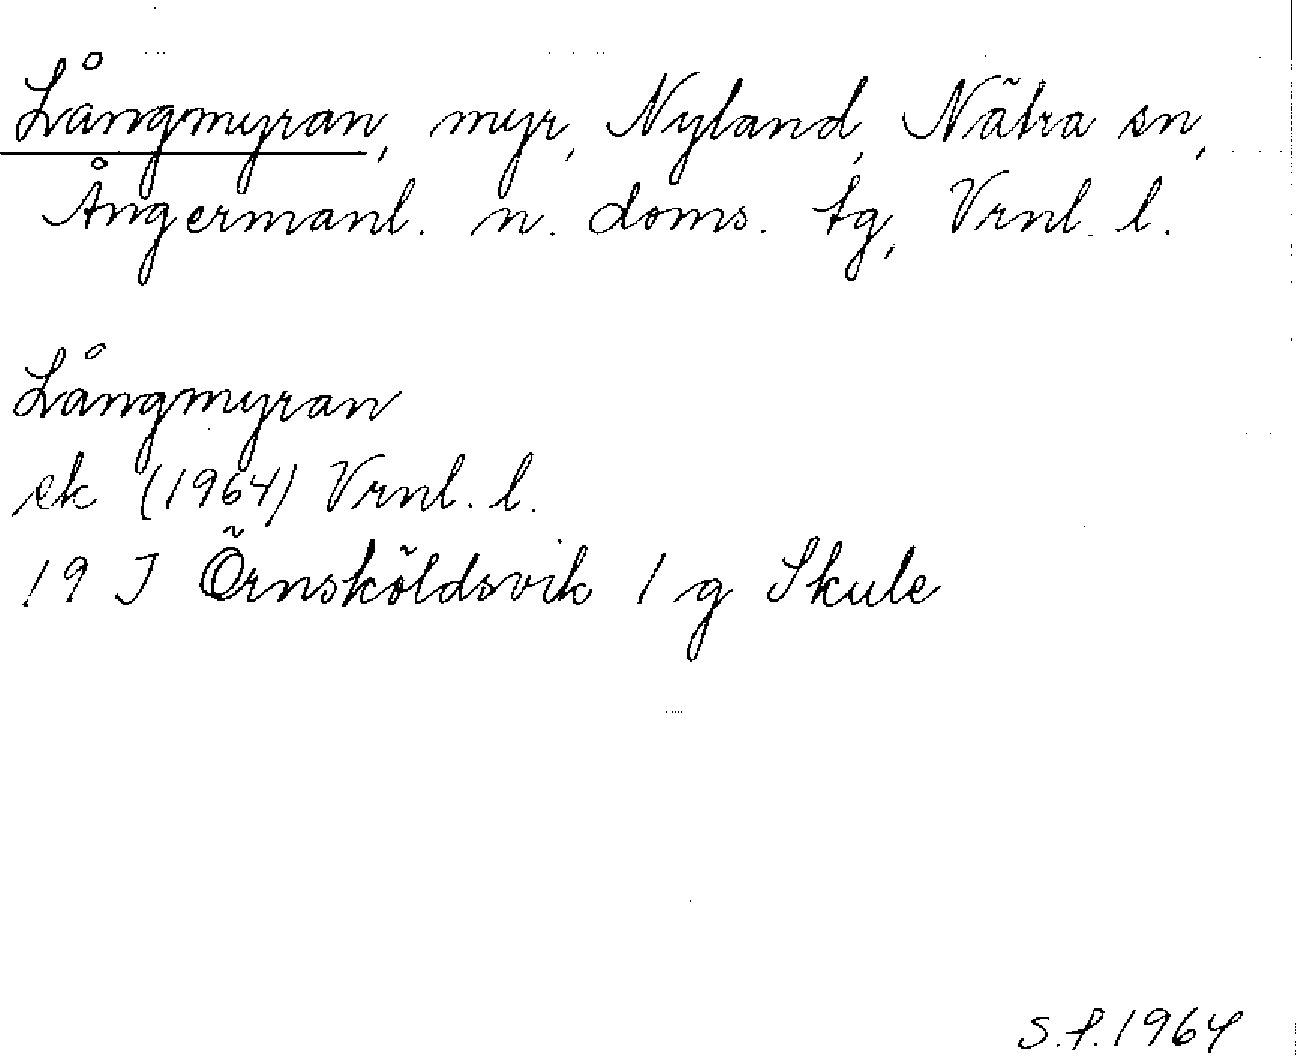 Långmyran, myr, Nyland, Nätra sn,
Ångermanl. n. doms. tg, Vrnl. l.
Långmyran
ek (1964) Vrnl. l.
19 J Örnsköldsvik 1 g Skule
S.f.1964